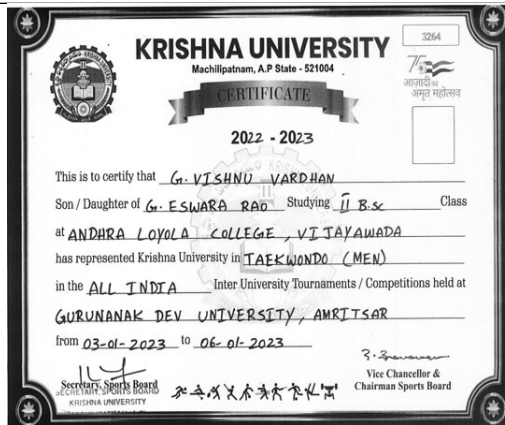 KRISHNA UNIVERSITY
3264
Machilipatnam, A.P State - 521004
CERTIFICATE
75
आज़ादी का
अमृत महोत्सव
2022 - 2023
This is to certify that G. VISHNU VARDHAN
Son / Daughter of G. ESWARA RAO Studying II B.sc Class
at ANDHRA LOYOLA COLLEGE, VIJAYAWADA
has represented Krishna University in TAEKWONDO (MEN)
in the ALL INDIA Inter University Tournaments / Competitions held at
GURUNANAK DEV UNIVERSITY, AMRITSAR
from 03-01-2023 to 06-01-2023
Secretary, Sports Board
SECRETARY, SPORTS BOARD
KRISHNA UNIVERSITY
Vice Chancellor &
Chairman Sports Board